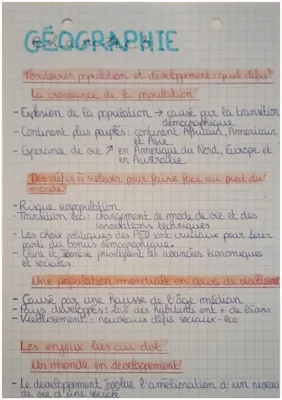 GÉOGRAPHIE
Territoires, population et développement: quel défis?
La croissance de la population
- Explosion de la population → causé par la transition
démographique
- Continent plus peuplés: continent Africain, Americain
et Asie.
- Esperance de vie ↗ en Amerique du Nord, Europe et
en Australie
Des défis à relever pour faire face au
monde
- Risque surpopulation
- Transition : changement de mode de vie et des
innovations techniques
- Les choix politiques des PED sont cruciaux pour tirer
parti du bonus démographique.
- Chine et privilégient les avancées économiques
et sociales.
Une population mondiale en cours de
- Causé par une hausse de l'âge médian
- Pays développés: 20% des habitants ont + de 65ans
- Vieillissement = nouveaux défis sociaux-éco
Les enjeux liés au
Un monde en développement
- Le developpement évolue l'amélioration d'un niveau
de vie d'une société